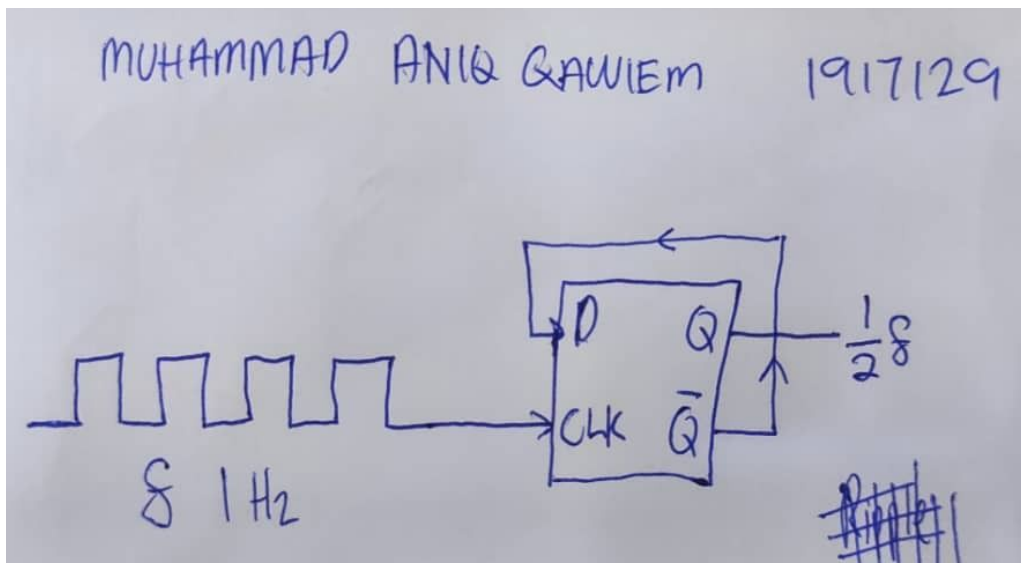 MUHAMMAD ANIQ QAWIEM 1917129
D Q
1/2 f
CLK Q̅
f 1 Hz